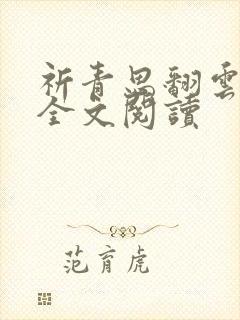 祈青思翻雲
全文閱讀
范育虎